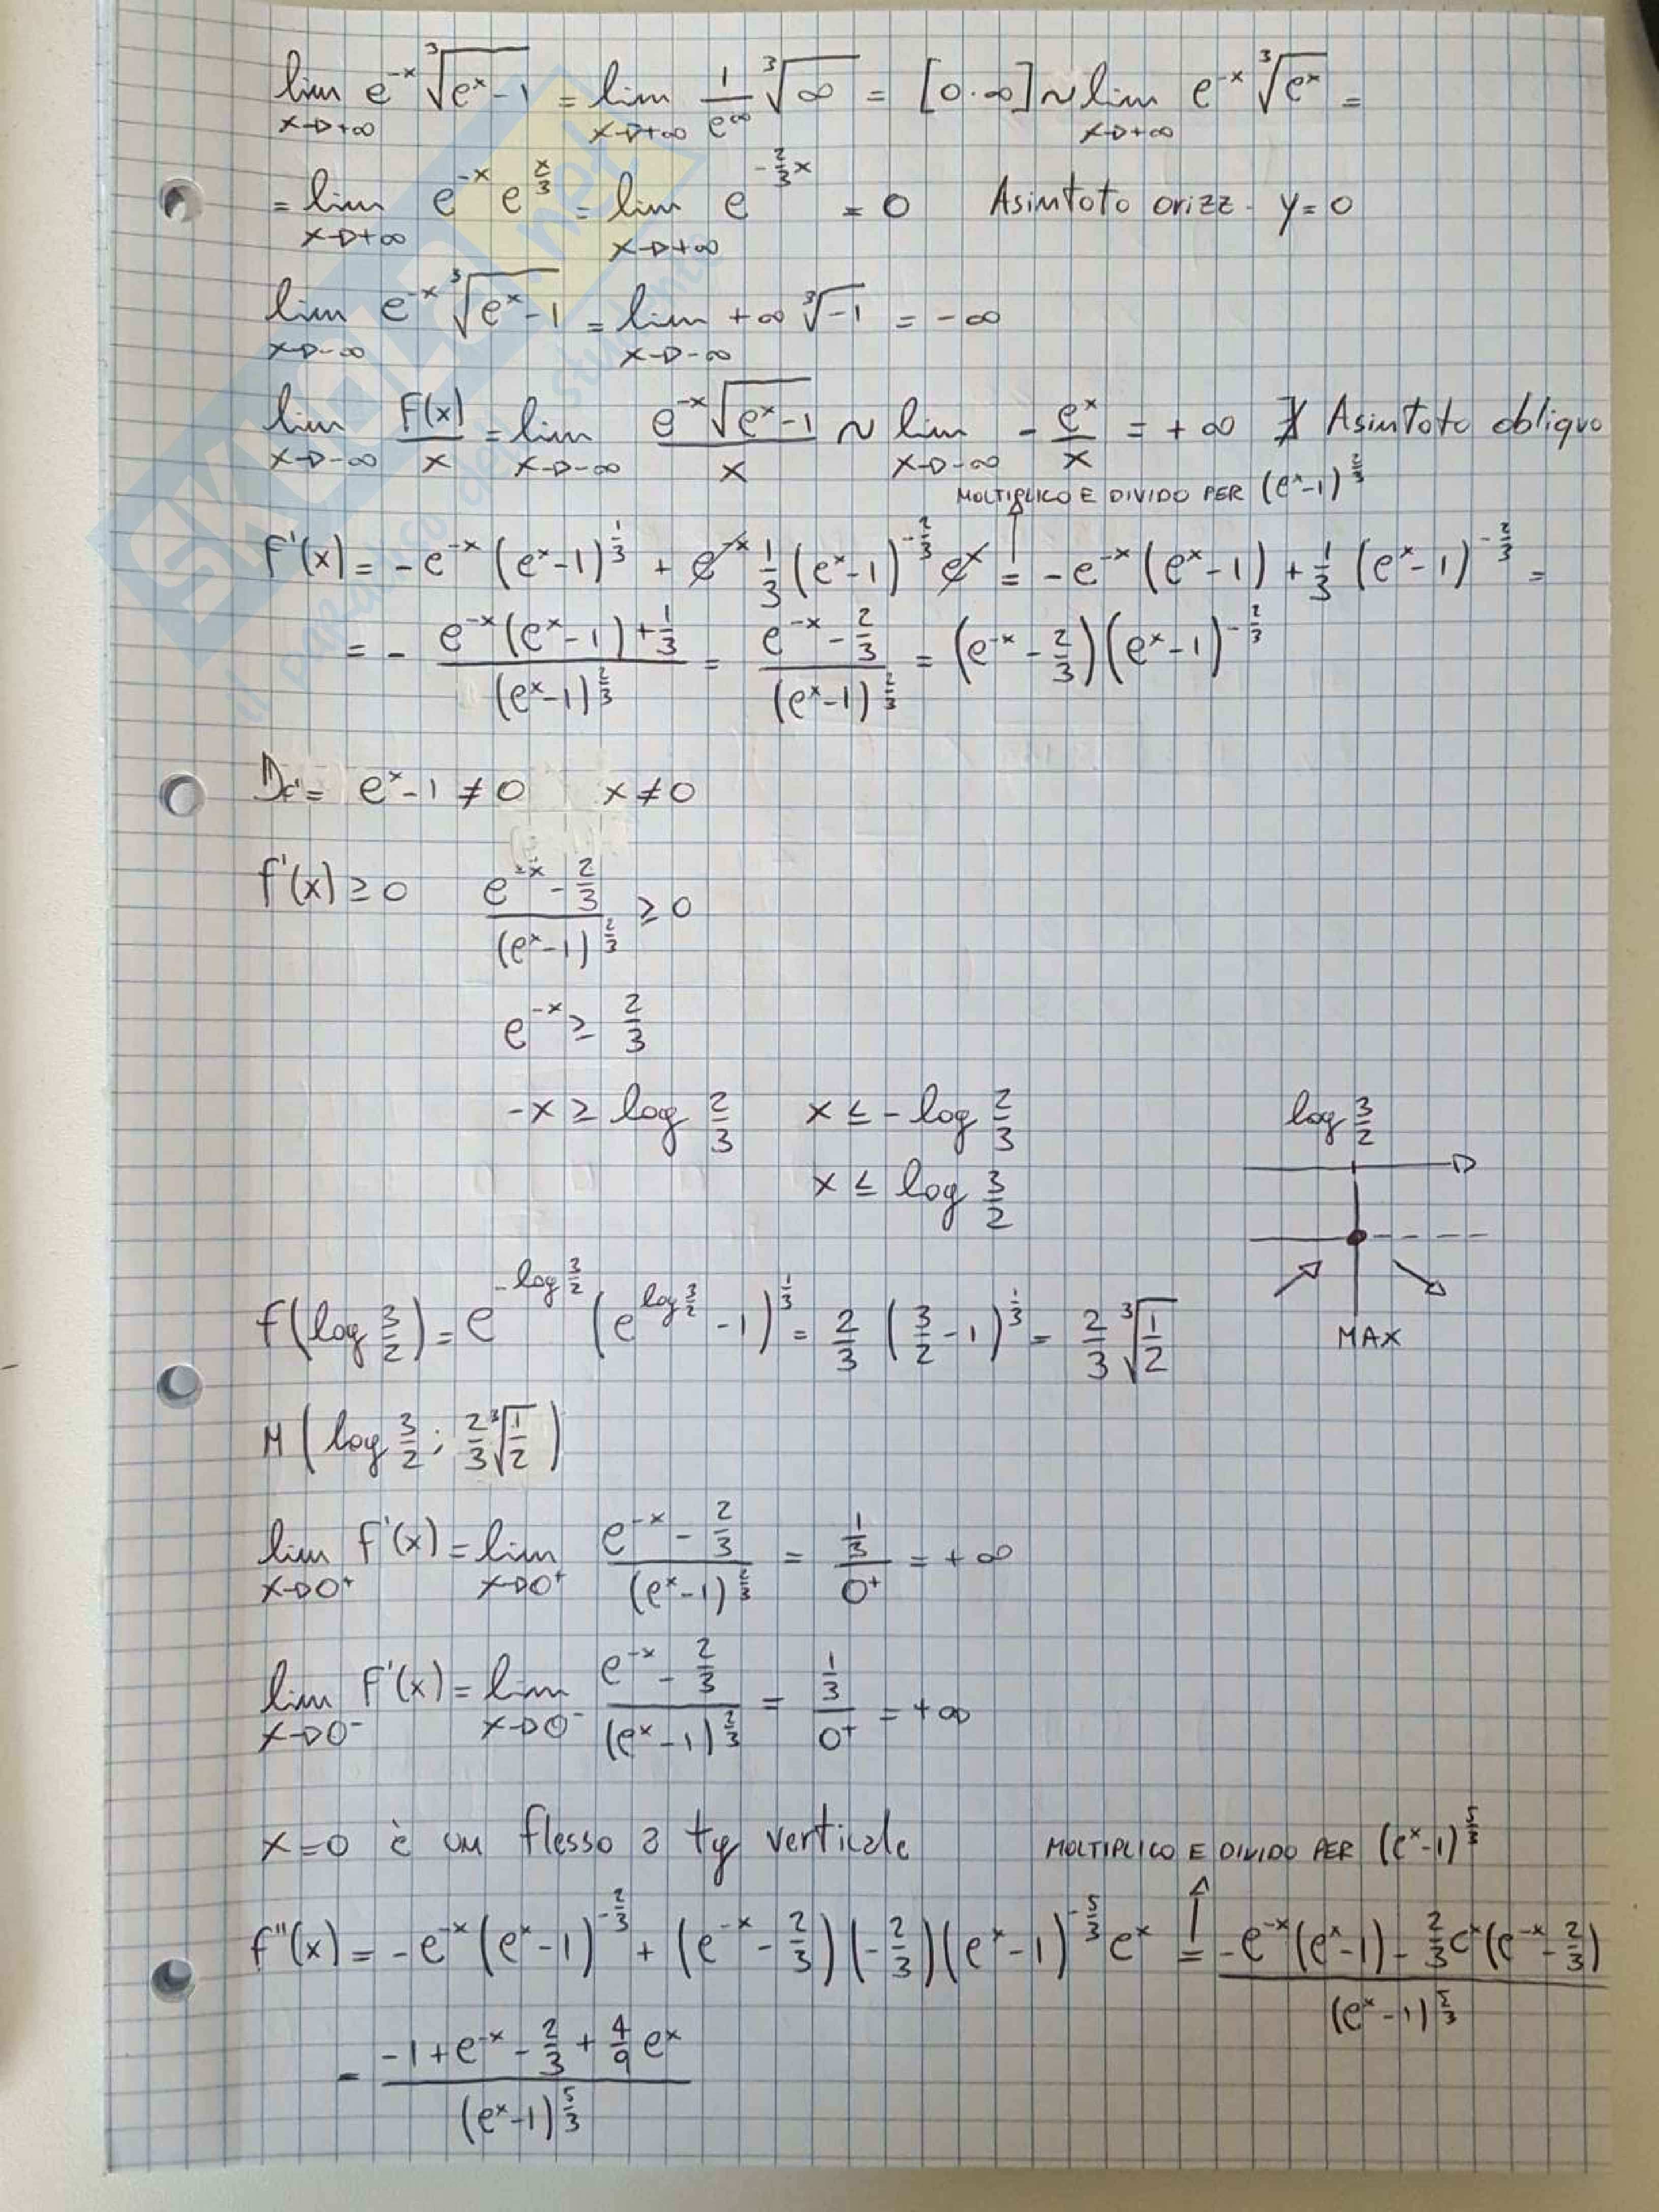 lim x→+∞ e^-x ∛(e^x-1) = lim x→+∞ 1/e^∞ ∛∞ = [0·∞] ~ lim x→+∞ e^-x ∛(e^x) =
= lim x→+∞ e^-x e^(x/3) = lim x→+∞ e^(-2/3 x) = 0 Asintoto orizz. y=0
lim x→-∞ e^-x ∛(e^x-1) = lim x→-∞ +∞ ∛-1 = -∞
lim x→-∞ F(x)/x = lim x→-∞ e^-x √(e^x-1) / x ~ lim x→-∞ - e^x/x = +∞ ∄ Asintoto obliquo
MOLTIPLICO E DIVIDO PER (e^x-1)^(2/3)
F'(x) = -e^-x (e^x-1)^(1/3) + e^-x 1/3 (e^x-1)^(-2/3) e^x = -e^-x (e^x-1) + 1/3 (e^x-1)^(-2/3) =
= - (e^-x (e^x-1) + 1/3) / (e^x-1)^(2/3) = (e^-x - 2/3) / (e^x-1)^(2/3) = (e^-x - 2/3)(e^x-1)^(-2/3)
Df' = e^x-1 ≠ 0 x ≠ 0
f'(x) ≥ 0 (e^-x - 2/3) / (e^x-1)^(2/3) ≥ 0
e^-x ≥ 2/3
-x ≥ log 2/3 x ≤ -log 2/3
x ≤ log 3/2
log 3/2
MAX
f(log 3/2) = e^(-log 3/2) (e^(log 3/2) -1)^(1/3) = 2/3 (3/2 -1)^(1/3) = 2/3 ∛(1/2)
M (log 3/2 ; 2/3 ∛(1/2))
lim x→0+ F'(x) = lim x→0+ (e^-x - 2/3) / (e^x-1)^(2/3) = (1/3) / 0+ = +∞
lim x→0- F'(x) = lim x→0- (e^-x - 2/3) / (e^x-1)^(2/3) = (1/3) / 0+ = +∞
x=0 è un flesso a tg verticale
MOLTIPLICO E DIVIDO PER (e^x-1)^(5/3)
f''(x) = -e^-x (e^x-1)^(-2/3) + (e^-x - 2/3)(-2/3)(e^x-1)^(-5/3) e^x = (-e^-x (e^x-1) - 2/3 e^x (e^-x - 2/3)) / (e^x-1)^(5/3)
= (-1 + e^-x - 2/3 + 4/9 e^x) / (e^x-1)^(5/3)
SKUOLA.net
il paradiso dello studente